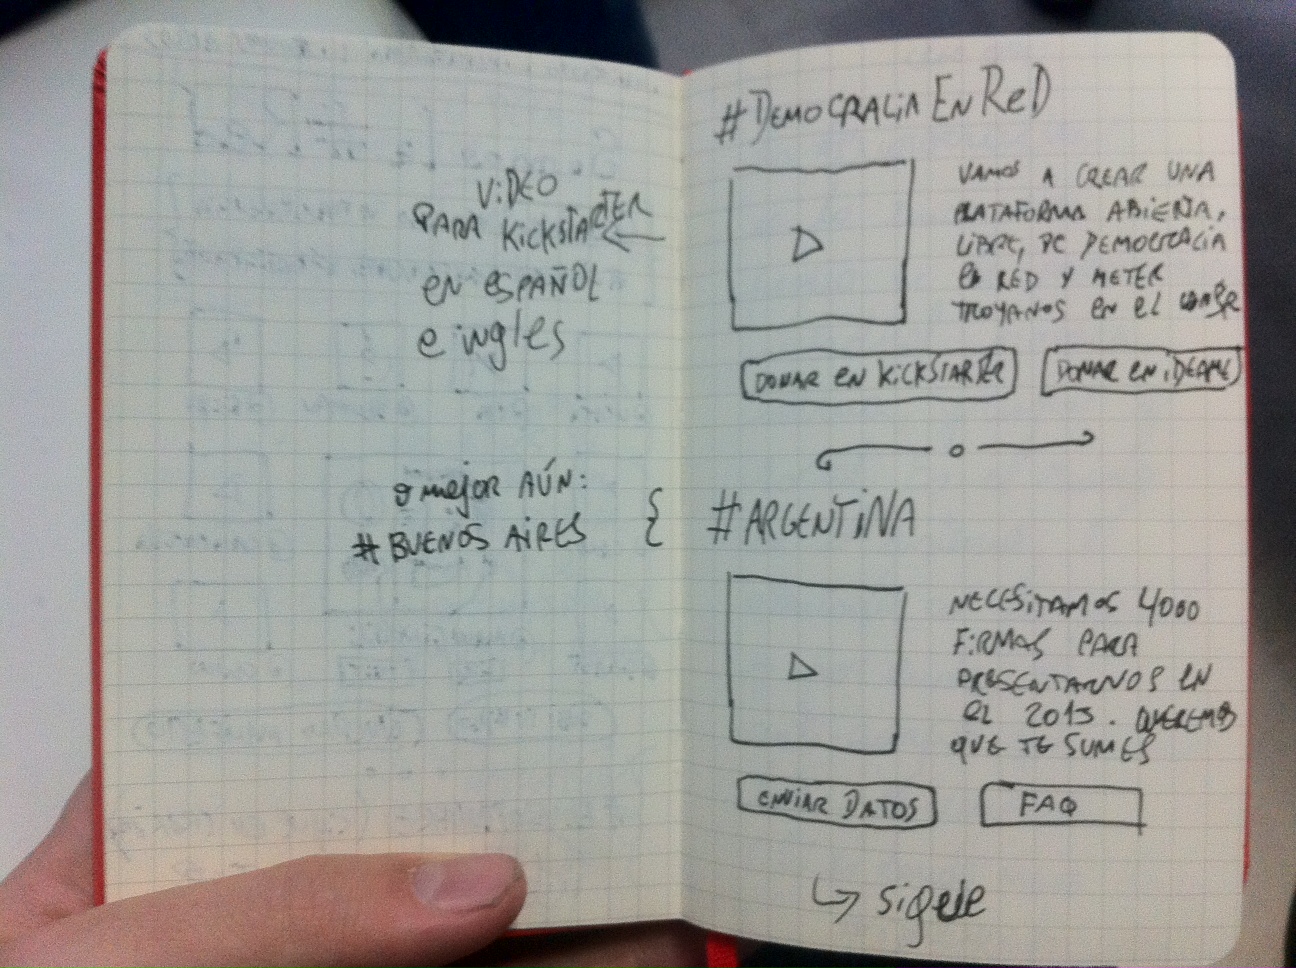 VIDEO
PARA KICKSTARTER
EN ESPAÑOL
e ingles
o mejor AÚN:
# BUENOS AIRES
#DEMOCRACIA EN ReD
VAMOS A CREAR UNA
PLATAFORMA ABIERTA,
LIBRE, DE DEMOCRACIA
EN RED Y METER
TROYANOS EN EL
DONAR EN KICKSTARTER
DONAR EN IDEAME
#ARGENTINA
NECESITAMOS 4000
FIRMAS PARA
PRESENTARNOS EN
EL 2013. QUEREMOS
QUE TE SUMES
ENVIAR DATOS
FAQ